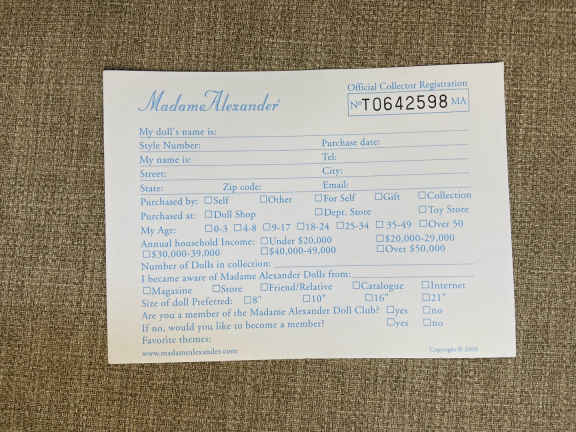 Madame Alexander®
Official Collector Registration
Nº T0642598 MA
My doll's name is:
Style Number: Purchase date:
My name is: Tel:
Street: City:
State: Zip code: Email:
Purchased by: ☐Self ☐Other ☐For Self ☐Gift ☐Collection
Purchased at: ☐Doll Shop ☐Dept. Store ☐Toy Store
My Age: ☐0-3 ☐4-8 ☐9-17 ☐18-24 ☐25-34 ☐35-49 ☐Over 50
Annual household Income: ☐Under $20,000 ☐$20,000-29,000
☐$30,000-39,000 ☐$40,000-49,000 ☐Over $50,000
Number of Dolls in collection:
I became aware of Madame Alexander Dolls from:
☐Magazine ☐Store ☐Friend/Relative ☐Catalogue ☐Internet
Size of doll Preferred: ☐8" ☐10" ☐16" ☐21"
Are you a member of the Madame Alexander Doll Club? ☐yes ☐no
If no, would you like to become a member? ☐yes ☐no
Favorite themes:
www.madamealexander.com Copyright ©